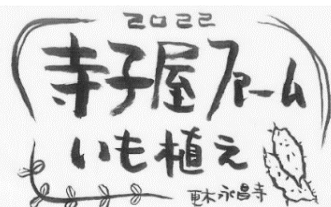 2022
寺子屋ファーム
いも植え
更木永昌寺